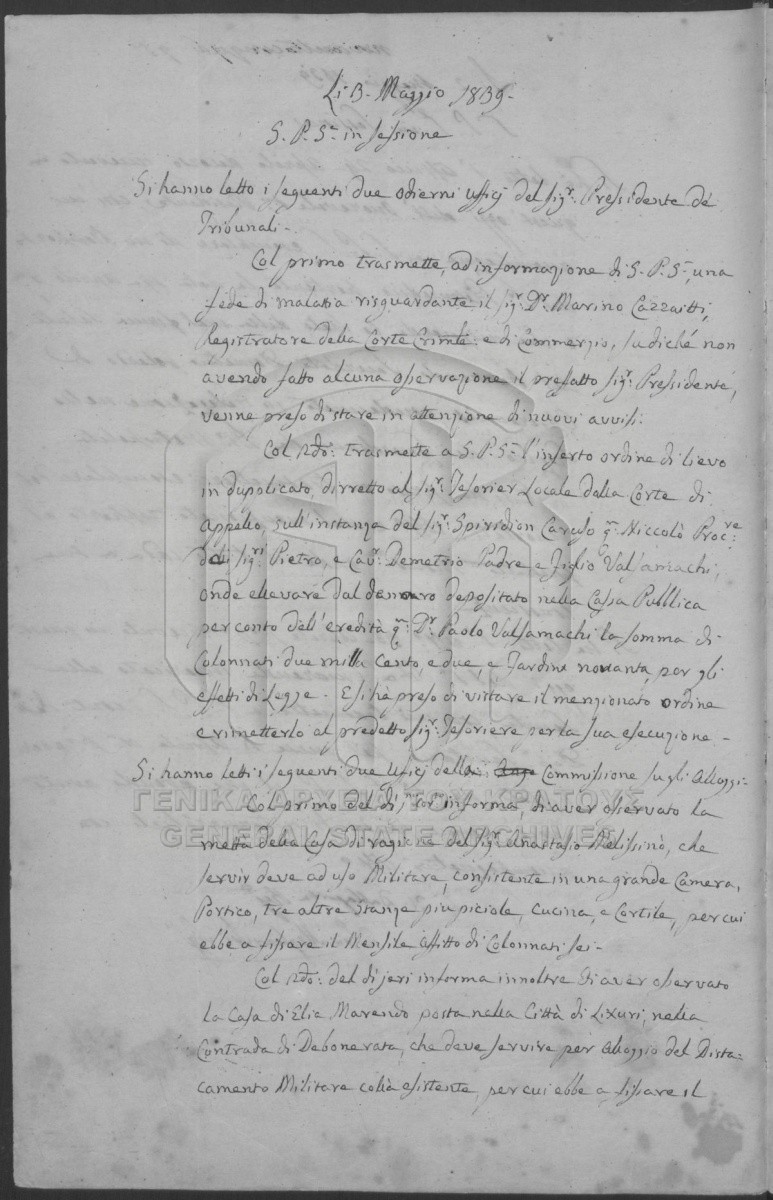 Li 3. Maggio 1839.
S. P. S.ª in sessione
Si hanno letto i seguenti due odierni ufficj del Sigr. Pressidente de'
Tribunali.
Col primo trasmette, ad informazione di S. P. S.ª, una
fede di malatia risguardante il Sigr. Dr. Marino Cazzaitti,
Registratore della Corte Crimle: e di Commerzio, su di ché non
avendo fatto alcuna osservazione il preffatto Sigr. Pressidente,
venne preso di stare in attenzione di nuovi avvisi.
Col 2do: trasmette a S. P. S.ª l'inserto ordine di lievo
in dupplicato, dirretto al Sigr. Tesorier Locale dalla Corte di
Appello, sull'instanza del Sigr. Spiridion Caruso qm. Niccolò Procre:
delli Sigri. Pietro, e Cavr. Demetrio Padre e Figlio Valsamachi,
onde ellevare dal dennaro depositato nella Cassa Pubblica
per conto dell'eredità qm: Dr. Paolo Valsamachi la somma di
Colonnati due milla cento, e due, e Fardini novanta, per gli
effetti di Legge. E si hà preso di vistare il menzionato ordine
e rimetterlo al predetto Sigr. Tesoriere per la sua esecuzione.
Si hanno letti i seguenti due Ufficj della Commissione sugli Alloggi.
Col primo del dì informa, di aver osservato la
mettà della Casa di ragione del Sigr. Anastasio Melissinò, che
servir deve ad uso Militare, consistente in una grande Camera,
Portico, tre altre stanze più piciole, Cucina, e Cortile, per cui
ebbe a fissare il Mensile affitto di Colonnati sei.
Col 2do: del di jeri informa innoltre di aver osservato
la Casa di Elia Marendo posta nella Città di Lixuri, nella
Contrada di Debonerata, che deve servire per Alloggio del Dista-
camento Militare collà esistente, per cui ebbe a fissare il
ΓΕΝΙΚΑ ΑΡΧΕΙΑ ΤΟΥ ΚΡΑΤΟΥΣ
GENERAL STATE ARCHIVES